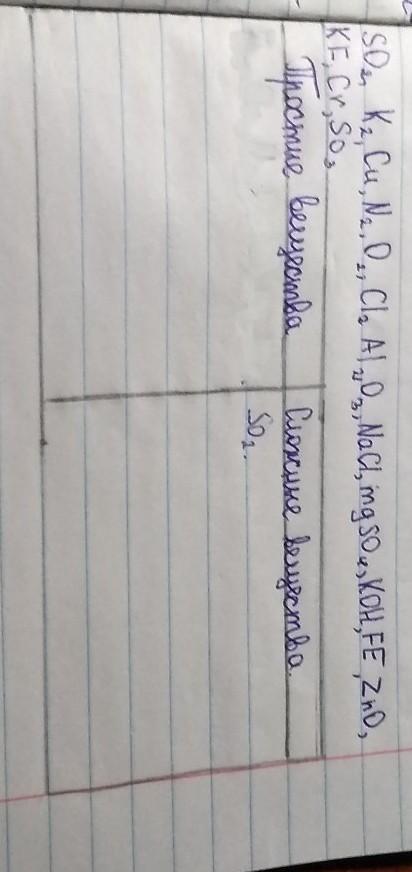 SO₂, K₂, Cu, N₂, O₂, Cl₂ Al₂O₃, NaCl, mgSO₄, KOH, FE, ZnO,
KF, Cr, SO₃
Простие вещества Сложние вещества.
SO₂.